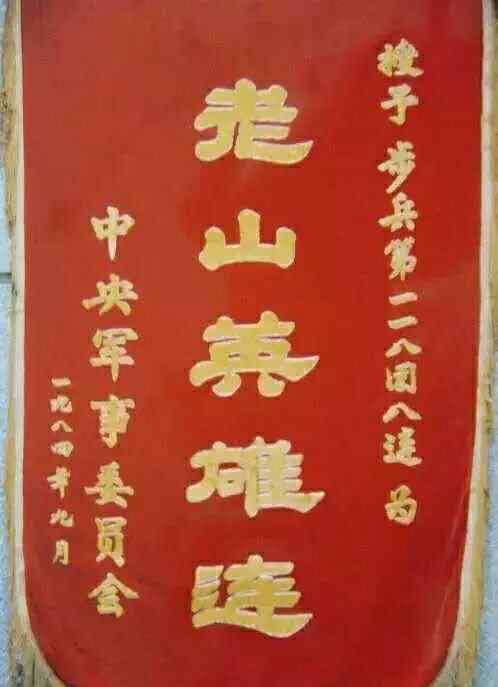 授予步兵第一一八团八连为
老山英雄连
中央军事委员会
一九八四年九月